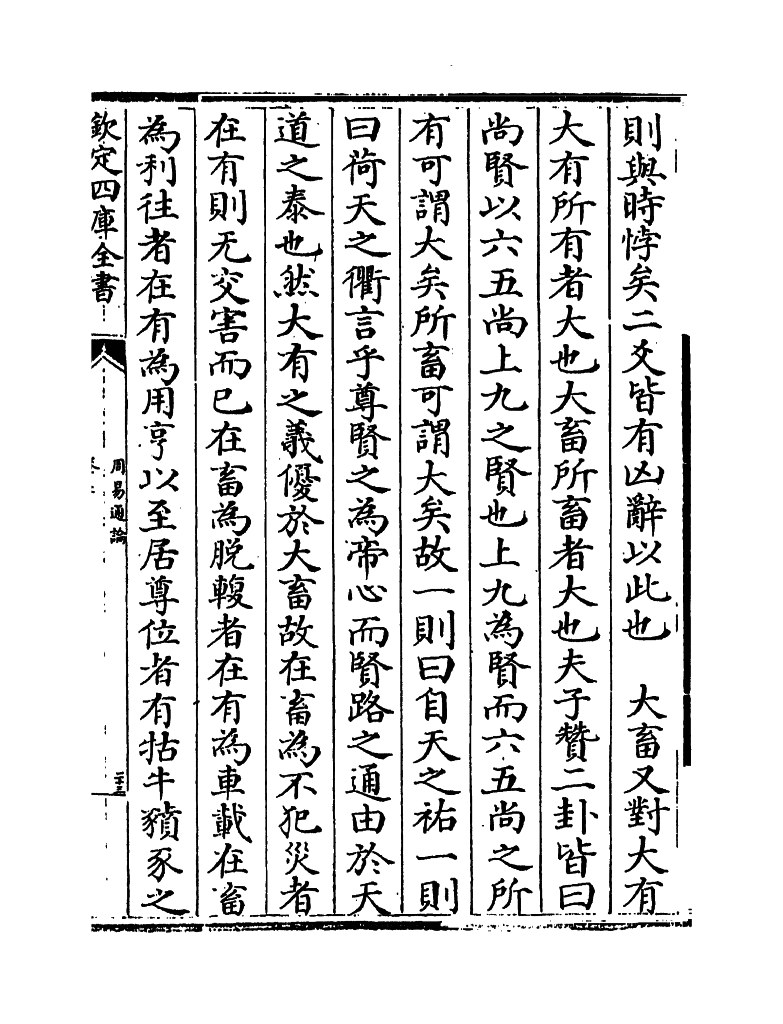 則與時悖矣二爻皆有凶辭以此也　大畜又對大有
大有所有者大也大畜所畜者大也夫子贊二卦皆曰
尚賢以六五尚上九之賢也上九為賢而六五尚之所
有可謂大矣所畜可謂大矣故一則曰自天之祐一則
曰荷天之衢言乎尊賢之為帝心而賢路之通由於天
道之泰也然大有之義優於大畜故在畜為不犯災者
在有則无交害而已在畜為脱輹者在有為車載在畜
為利往者在有為用亨以至居尊位者有牿牛豶豕之
欽定四庫全書
周易通論
二十三